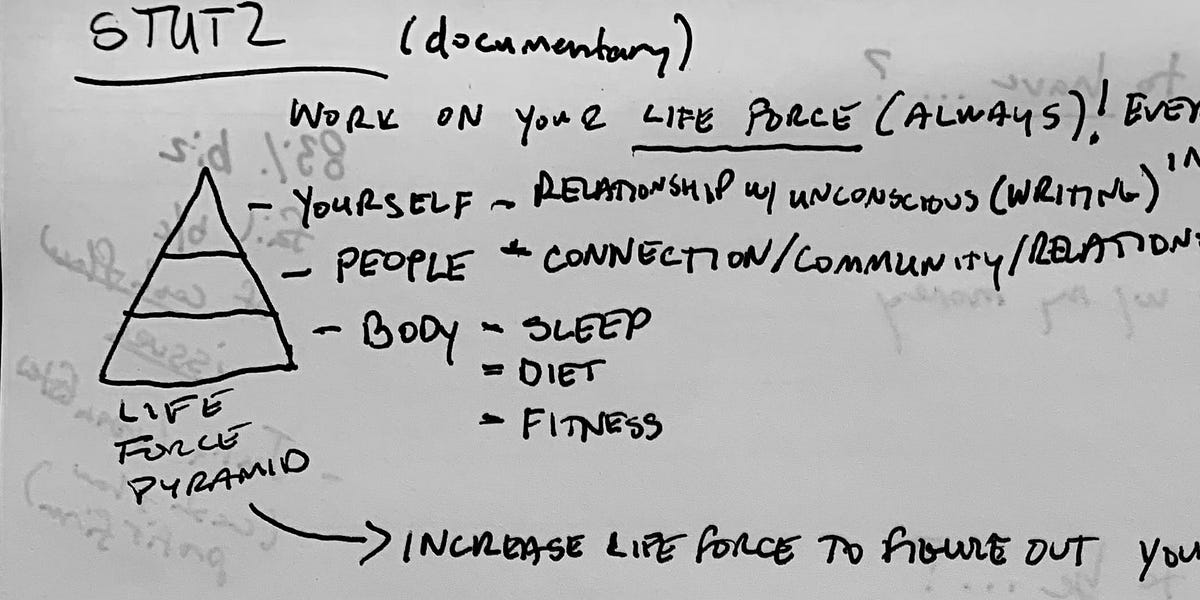 STUTZ (documentary)
WORK ON YOUR LIFE FORCE (ALWAYS)! EVE
IN
- YOURSELF - RELATIONSHIP W/ UNCONSCIOUS (WRITING)
- PEOPLE - CONNECTION/COMMUNITY/RELATION
- BODY - SLEEP
- DIET
- FITNESS
LIFE
FORCE
PYRAMID
→ INCREASE LIFE FORCE TO FIGURE OUT YOU